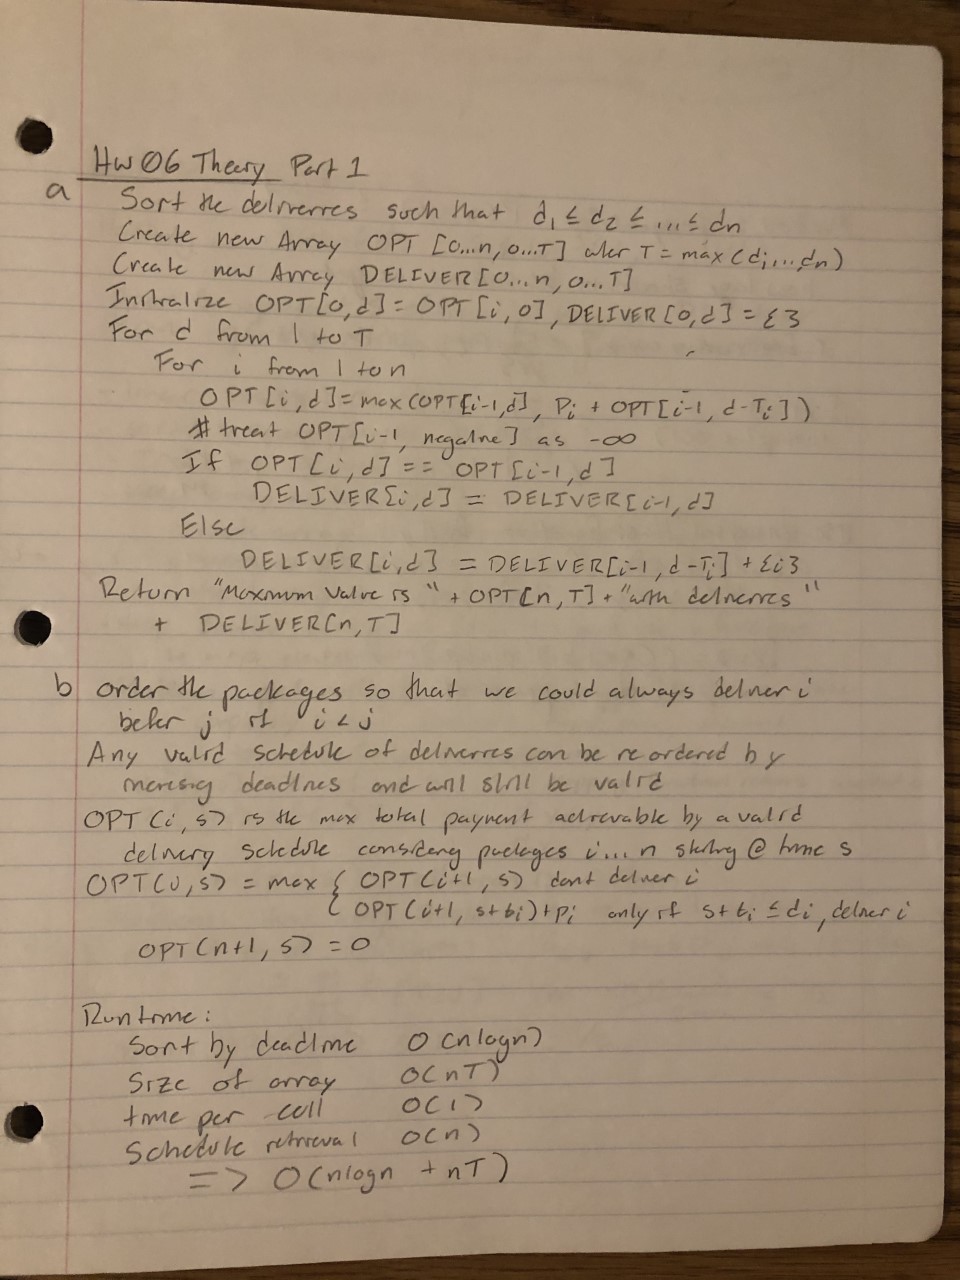 HW 06 Theory Part 1
a Sort the deliveries such that d₁ ≤ d₂ ≤ ... ≤ dn
Create new Array OPT [0...n, 0...T] wher T = max(di,...,dn)
Create new Array DELIVER[0...n, 0...T]
Initialize OPT[0,d] = OPT[i,0], DELIVER[0,d] = {}
For d from 1 to T
For i from 1 to n
OPT[i,d] = max(OPT[i-1,d], Pi + OPT[i-1, d-Ti])
# treat OPT[i-1, negative] as -∞
If OPT[i,d] == OPT[i-1,d]
DELIVER[i,d] = DELIVER[i-1,d]
Else
DELIVER[i,d] = DELIVER[i-1, d-Ti] + {i}
Return "Maximum Value is " + OPT[n,T] + "with deliveries "
+ DELIVER[n,T]
b order the packages so that we could always deliver i
befer j if i < j
Any valid schedule of deliveries can be reordered by
incresing deadlines and will still be valid
OPT(i,s) is the max total payment achievable by a valid
delivery schedule considering packages i...n starting @ time s
OPT(i,s) = max { OPT(i+1,s) dont deliver i
{ OPT(i+1, s+ti)+pi only if s+ti ≤ di, deliver i
OPT(n+1, s) = 0
Runtime:
Sort by deadline O(nlogn)
Size of array O(nT)
time per cell O(1)
Schedule retrieval O(n)
=> O(nlogn + nT)